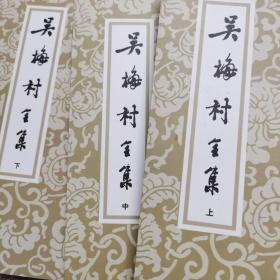 吴梅村全集
上
吴梅村全集
中
吴梅村全集
下